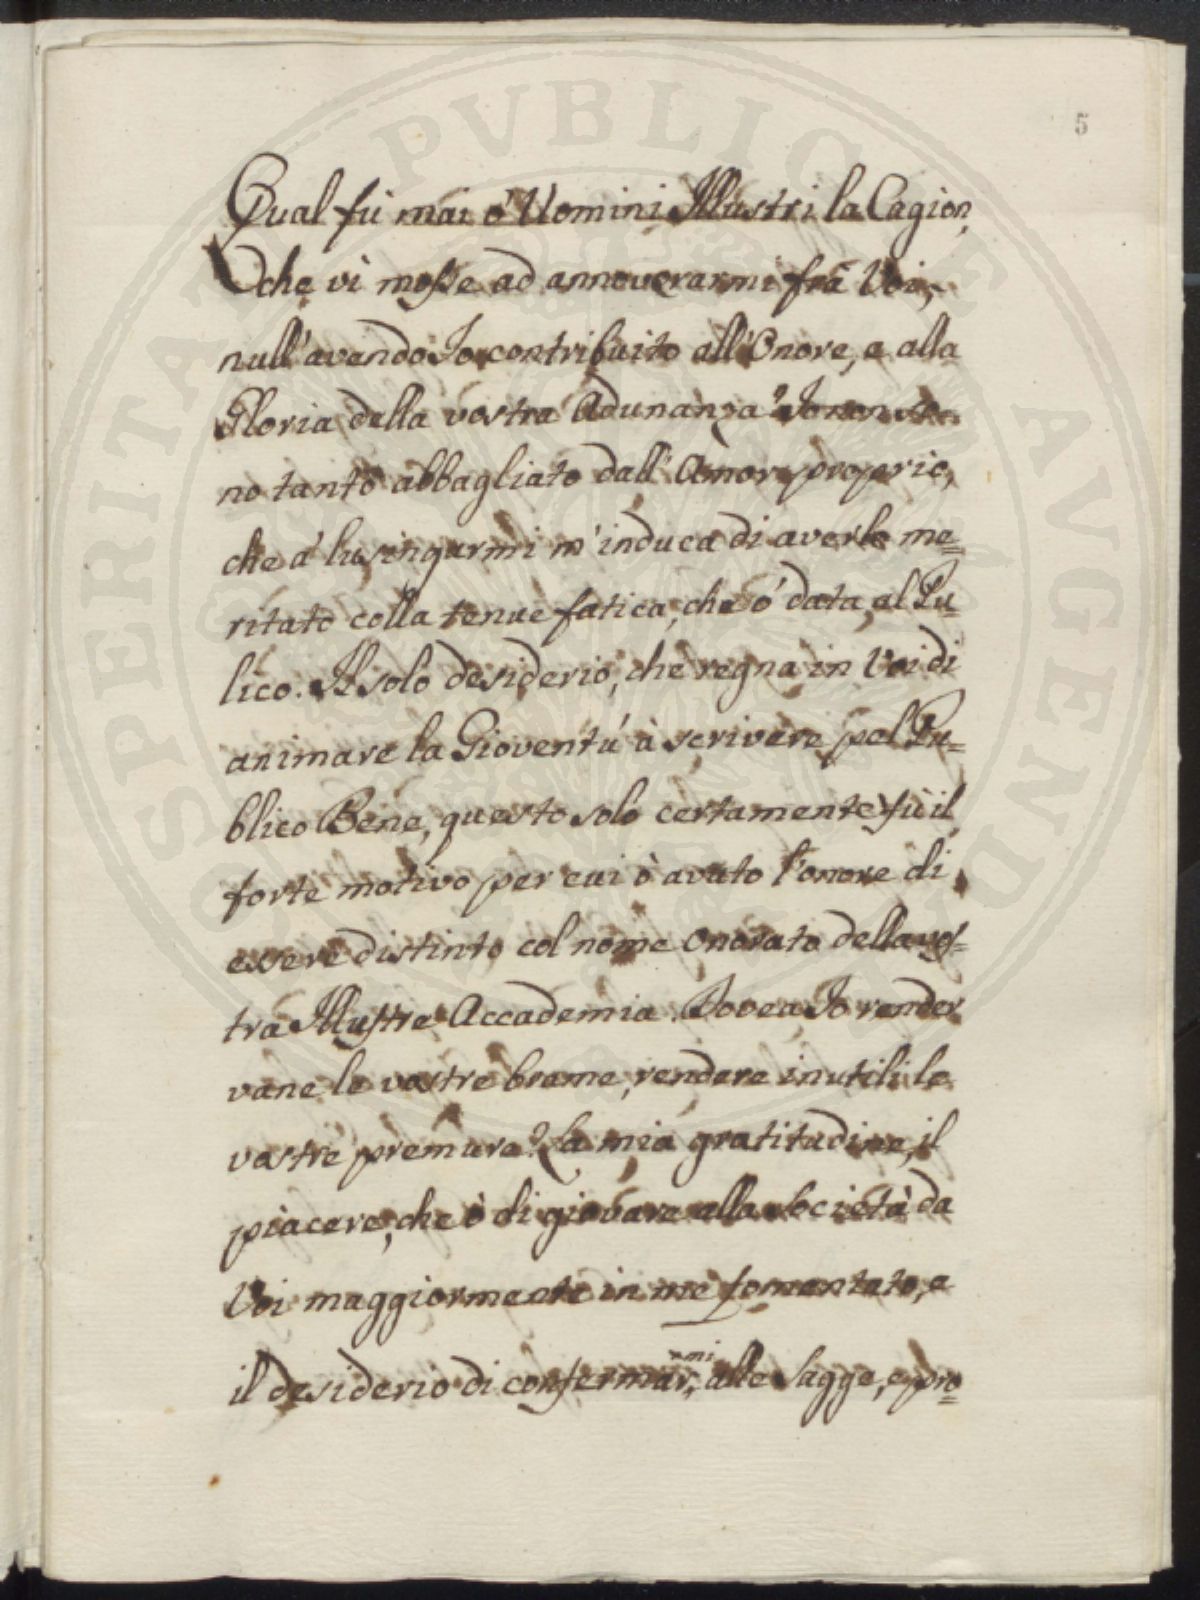 5
Qual fù mai ó Uomini Illustri la Cagion,
che vi mosse ad annoverarmi frà Voi,
null'avendo Io contribuito all'Onore, e alla
Gloria della vostra Adunanza? Io non so-
no tanto abbagliato dall'Amor proprio,
che á lusingarmi m'induca di averlo me=
ritato colla tenue fatica, che ó data al Pu
lico. Il solo desiderio, che regna in Voi di
animare la Gioventú à scrivere pel Pu=
blico Bene, questo solo certamente fù il
forte motivo per cui ò avuto l'onore di
essere distinto col nome onorato della vos=
tra Illustre Accademia. Dovea Io render
vane le vostre brame, rendere inutili le
vostre premure? La mia gratitudine, il
piacere, che ò di giovare alla Società da
Voi maggiormente in me fomentato, e
il desiderio di confermarmi, alle Sagge, e pro=
PROSPERITATI PVBLICAE AVGENDAE